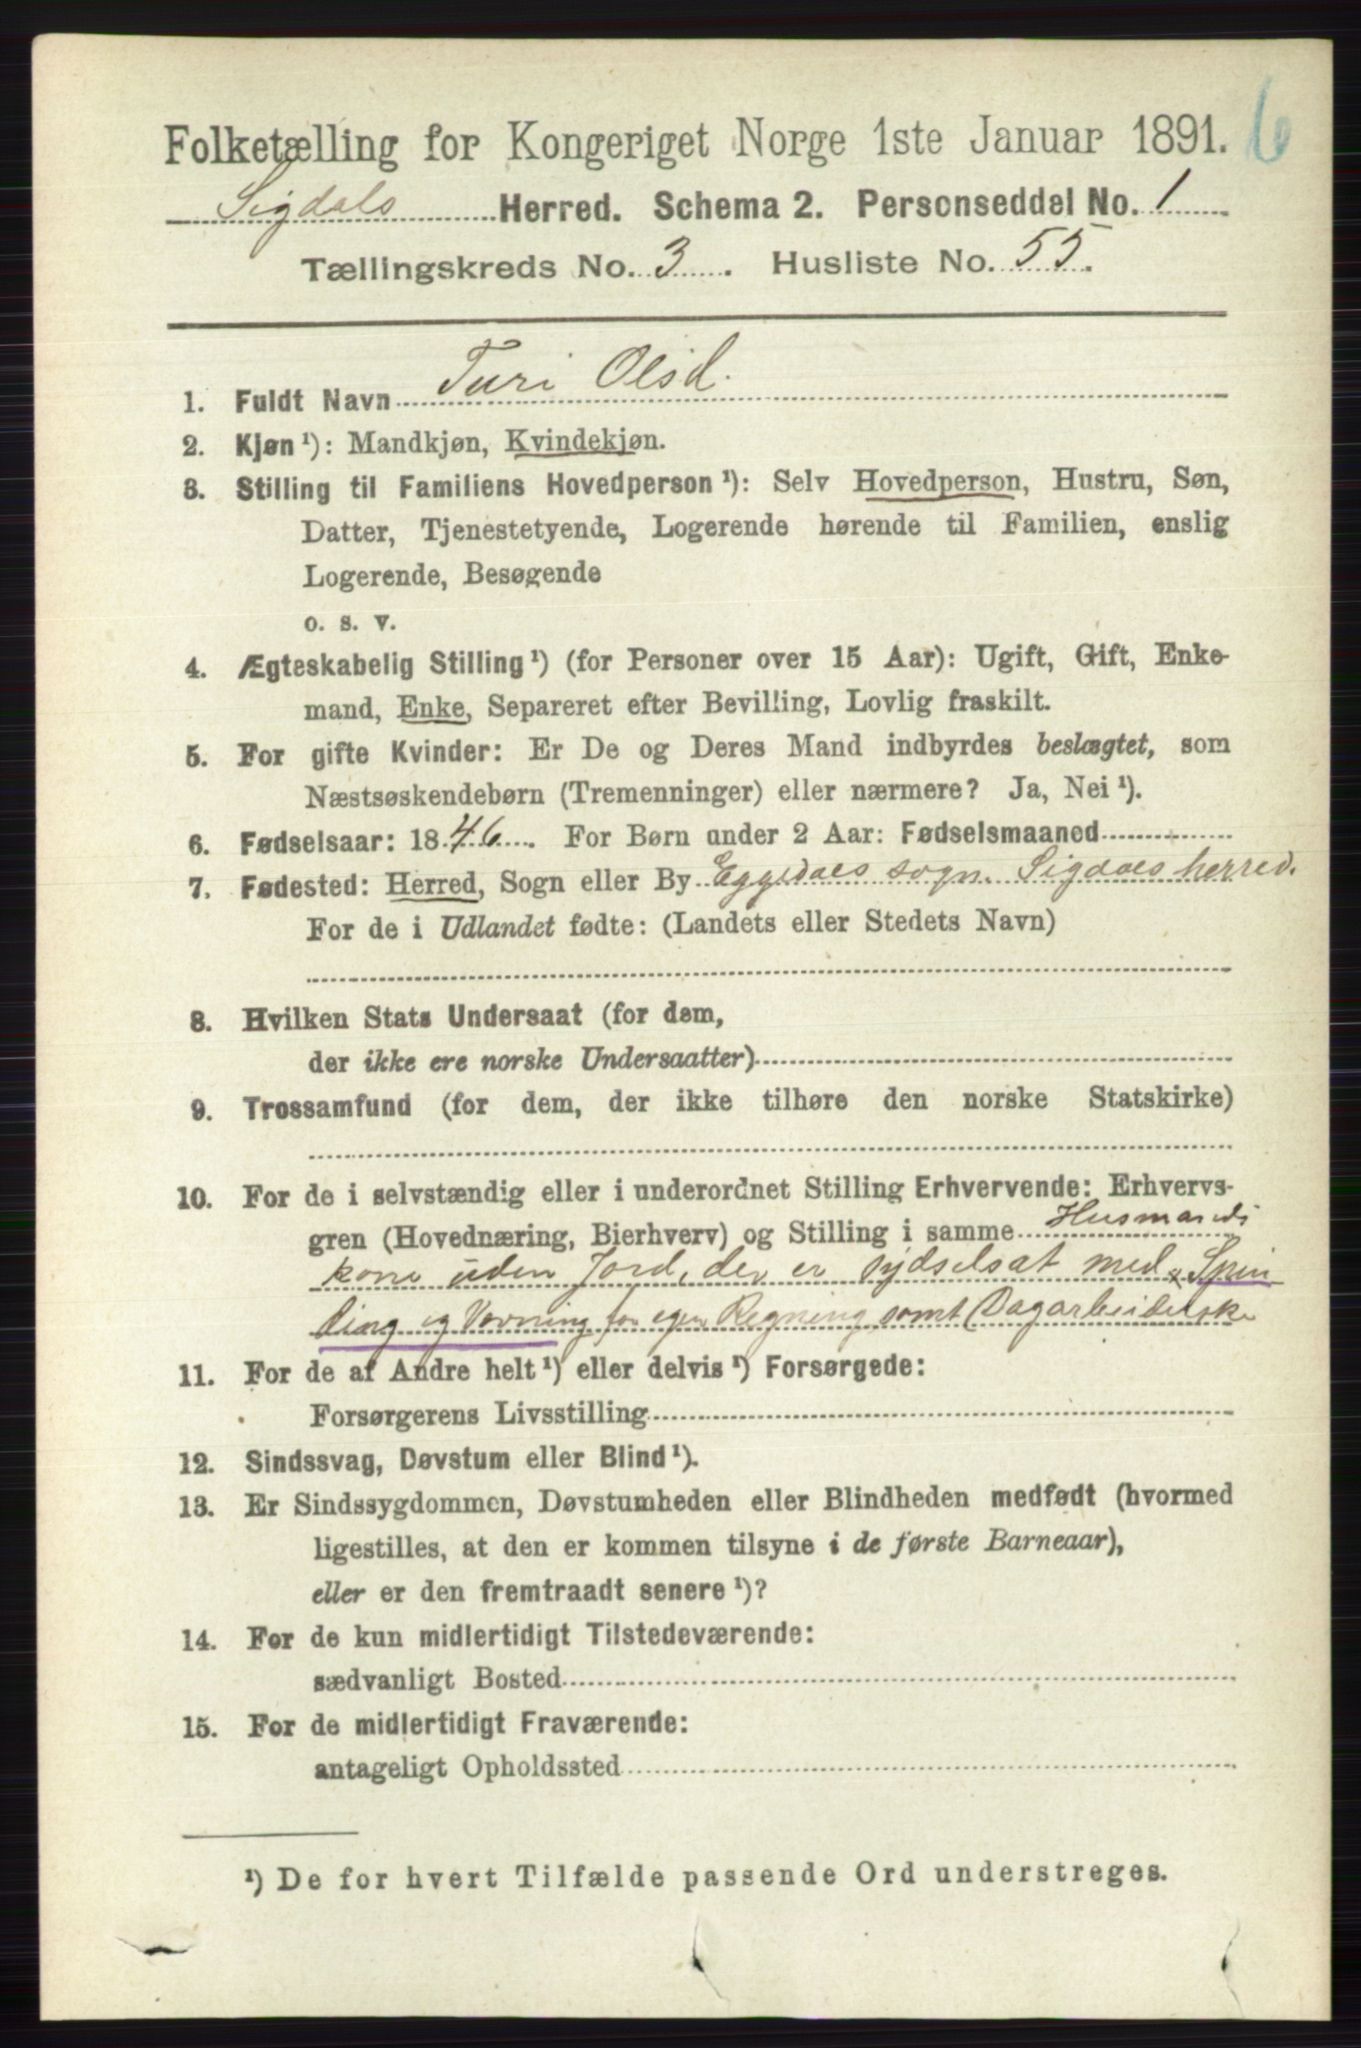 Folketælling for Kongeriget Norge 1ste Januar 1891. 6
Sigdals Herred. Schema 2. Personseddel No. 1
Tællingskreds No. 3. Husliste No. 55.
1. Fuldt Navn Turi Olsd.
2. Kjøn ¹): Mandkjøn, Kvindekjøn.
3. Stilling til Familiens Hovedperson ¹): Selv Hovedperson, Hustru, Søn,
Datter, Tjenestetyende, Logerende hørende til Familien, enslig
Logerende, Besøgende
o. s. v.
4. Ægteskabelig Stilling ¹) (for Personer over 15 Aar): Ugift, Gift, Enke-
mand, Enke, Separeret efter Bevilling, Lovlig fraskilt.
5. For gifte Kvinder: Er De og Deres Mand indbyrdes beslægtet, som
Næstsøskendebørn (Tremenninger) eller nærmere? Ja, Nei ¹).
6. Fødselsaar: 1846. For Børn under 2 Aar: Fødselsmaaned
7. Fødested: Herred, Sogn eller By Eggedals sogn. Sigdals herred.
For de i Udlandet fødte: (Landets eller Stedets Navn)
8. Hvilken Stats Undersaat (for dem,
der ikke ere norske Undersaatter)
9. Trossamfund (for dem, der ikke tilhøre den norske Statskirke)
10. For de i selvstændig eller i underordnet Stilling Erhvervende: Erhvervs-
gren (Hovednæring, Bierhverv) og Stilling i samme Husmands
kone uden Jord, der er sydselsat med Spin
ding og Vævning for egen Regning samt Dagarbeiderske
11. For de af Andre helt ¹) eller delvis ¹) Forsørgede:
Forsørgerens Livsstilling
12. Sindssvag, Døvstum eller Blind ¹).
13. Er Sindssygdommen, Døvstumheden eller Blindheden medfødt (hvormed
ligestilles, at den er kommen tilsyne i de første Barneaar),
eller er den fremtraadt senere ¹)?
14. For de kun midlertidigt Tilstedeværende:
sædvanligt Bosted
15. For de midlertidigt Fraværende:
antageligt Opholdssted
¹) De for hvert Tilfælde passende Ord understreges.